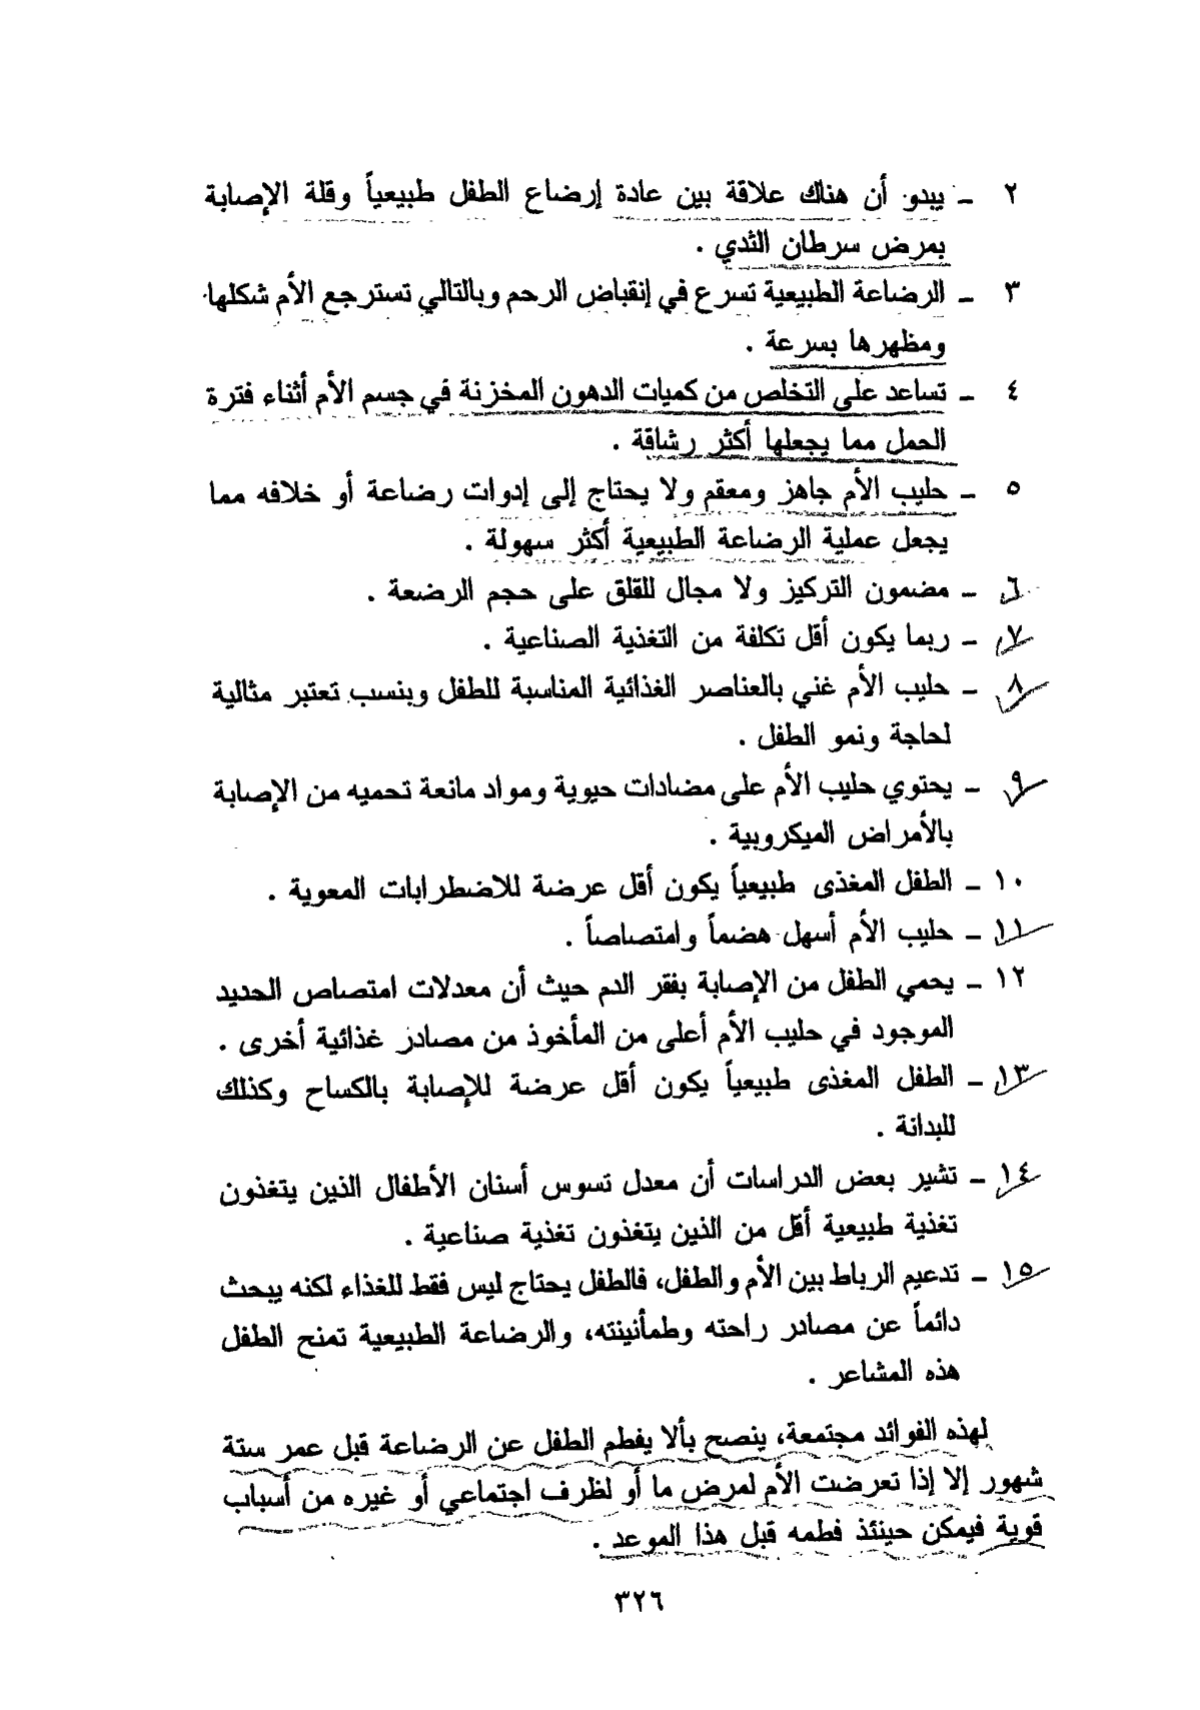 ٢ ــ يبدو أن هناك علاقة بين عادة إرضاع الطفل طبيعياً وقلة الإصابة
بمرض سرطان الثدي .
٣ ــ الرضاعة الطبيعية تسرع في إنقباض الرحم وبالتالي تسترجع الأم شكلها
ومظهرها بسرعة .
٤ ــ تساعد على التخلص من كميات الدهون المخزنة في جسم الأم أثناء فترة
الحمل مما يجعلها أكثر رشاقة .
٥ ــ حليب الأم جاهز ومعقم ولا يحتاج إلى إدوات رضاعة أو خلافه مما
يجعل عملية الرضاعة الطبيعية أكثر سهولة .
٦ ــ مضمون التركيز ولا مجال للقلق على حجم الرضعة .
٧ ــ ربما يكون أقل تكلفة من التغذية الصناعية .
٨ ــ حليب الأم غني بالعناصر الغذائية المناسبة للطفل وبنسب تعتبر مثالية
لحاجة ونمو الطفل .
٩ ــ يحتوي حليب الأم على مضادات حيوية ومواد مانعة تحميه من الإصابة
بالأمراض الميكروبية .
١٠ ــ الطفل المغذى طبيعياً يكون أقل عرضة للاضطرابات المعوية .
١١ ــ حليب الأم أسهل هضماً وامتصاصاً .
١٢ ــ يحمي الطفل من الإصابة بفقر الدم حيث أن معدلات امتصاص الحديد
الموجود في حليب الأم أعلى من المأخوذ من مصادر غذائية أخرى .
١٣ ــ الطفل المغذى طبيعياً يكون أقل عرضة للإصابة بالكساح وكذلك
للبدانة .
١٤ ــ تشير بعض الدراسات أن معدل تسوس أسنان الأطفال الذين يتغذون
تغذية طبيعية أقل من الذين يتغذون تغذية صناعية .
١٥ ــ تدعيم الرباط بين الأم والطفل، فالطفل يحتاج ليس فقط للغذاء لكنه يبحث
دائماً عن مصادر راحته وطمأنينته، والرضاعة الطبيعية تمنح الطفل
هذه المشاعر .
لهذه الفوائد مجتمعة، ينصح بألا يفطم الطفل عن الرضاعة قبل عمر ستة
شهور إلا إذا تعرضت الأم لمرض ما أو لظرف اجتماعي أو غيره من أسباب
قوية فيمكن حينئذ فطمه قبل هذا الموعد .
٣٢٦